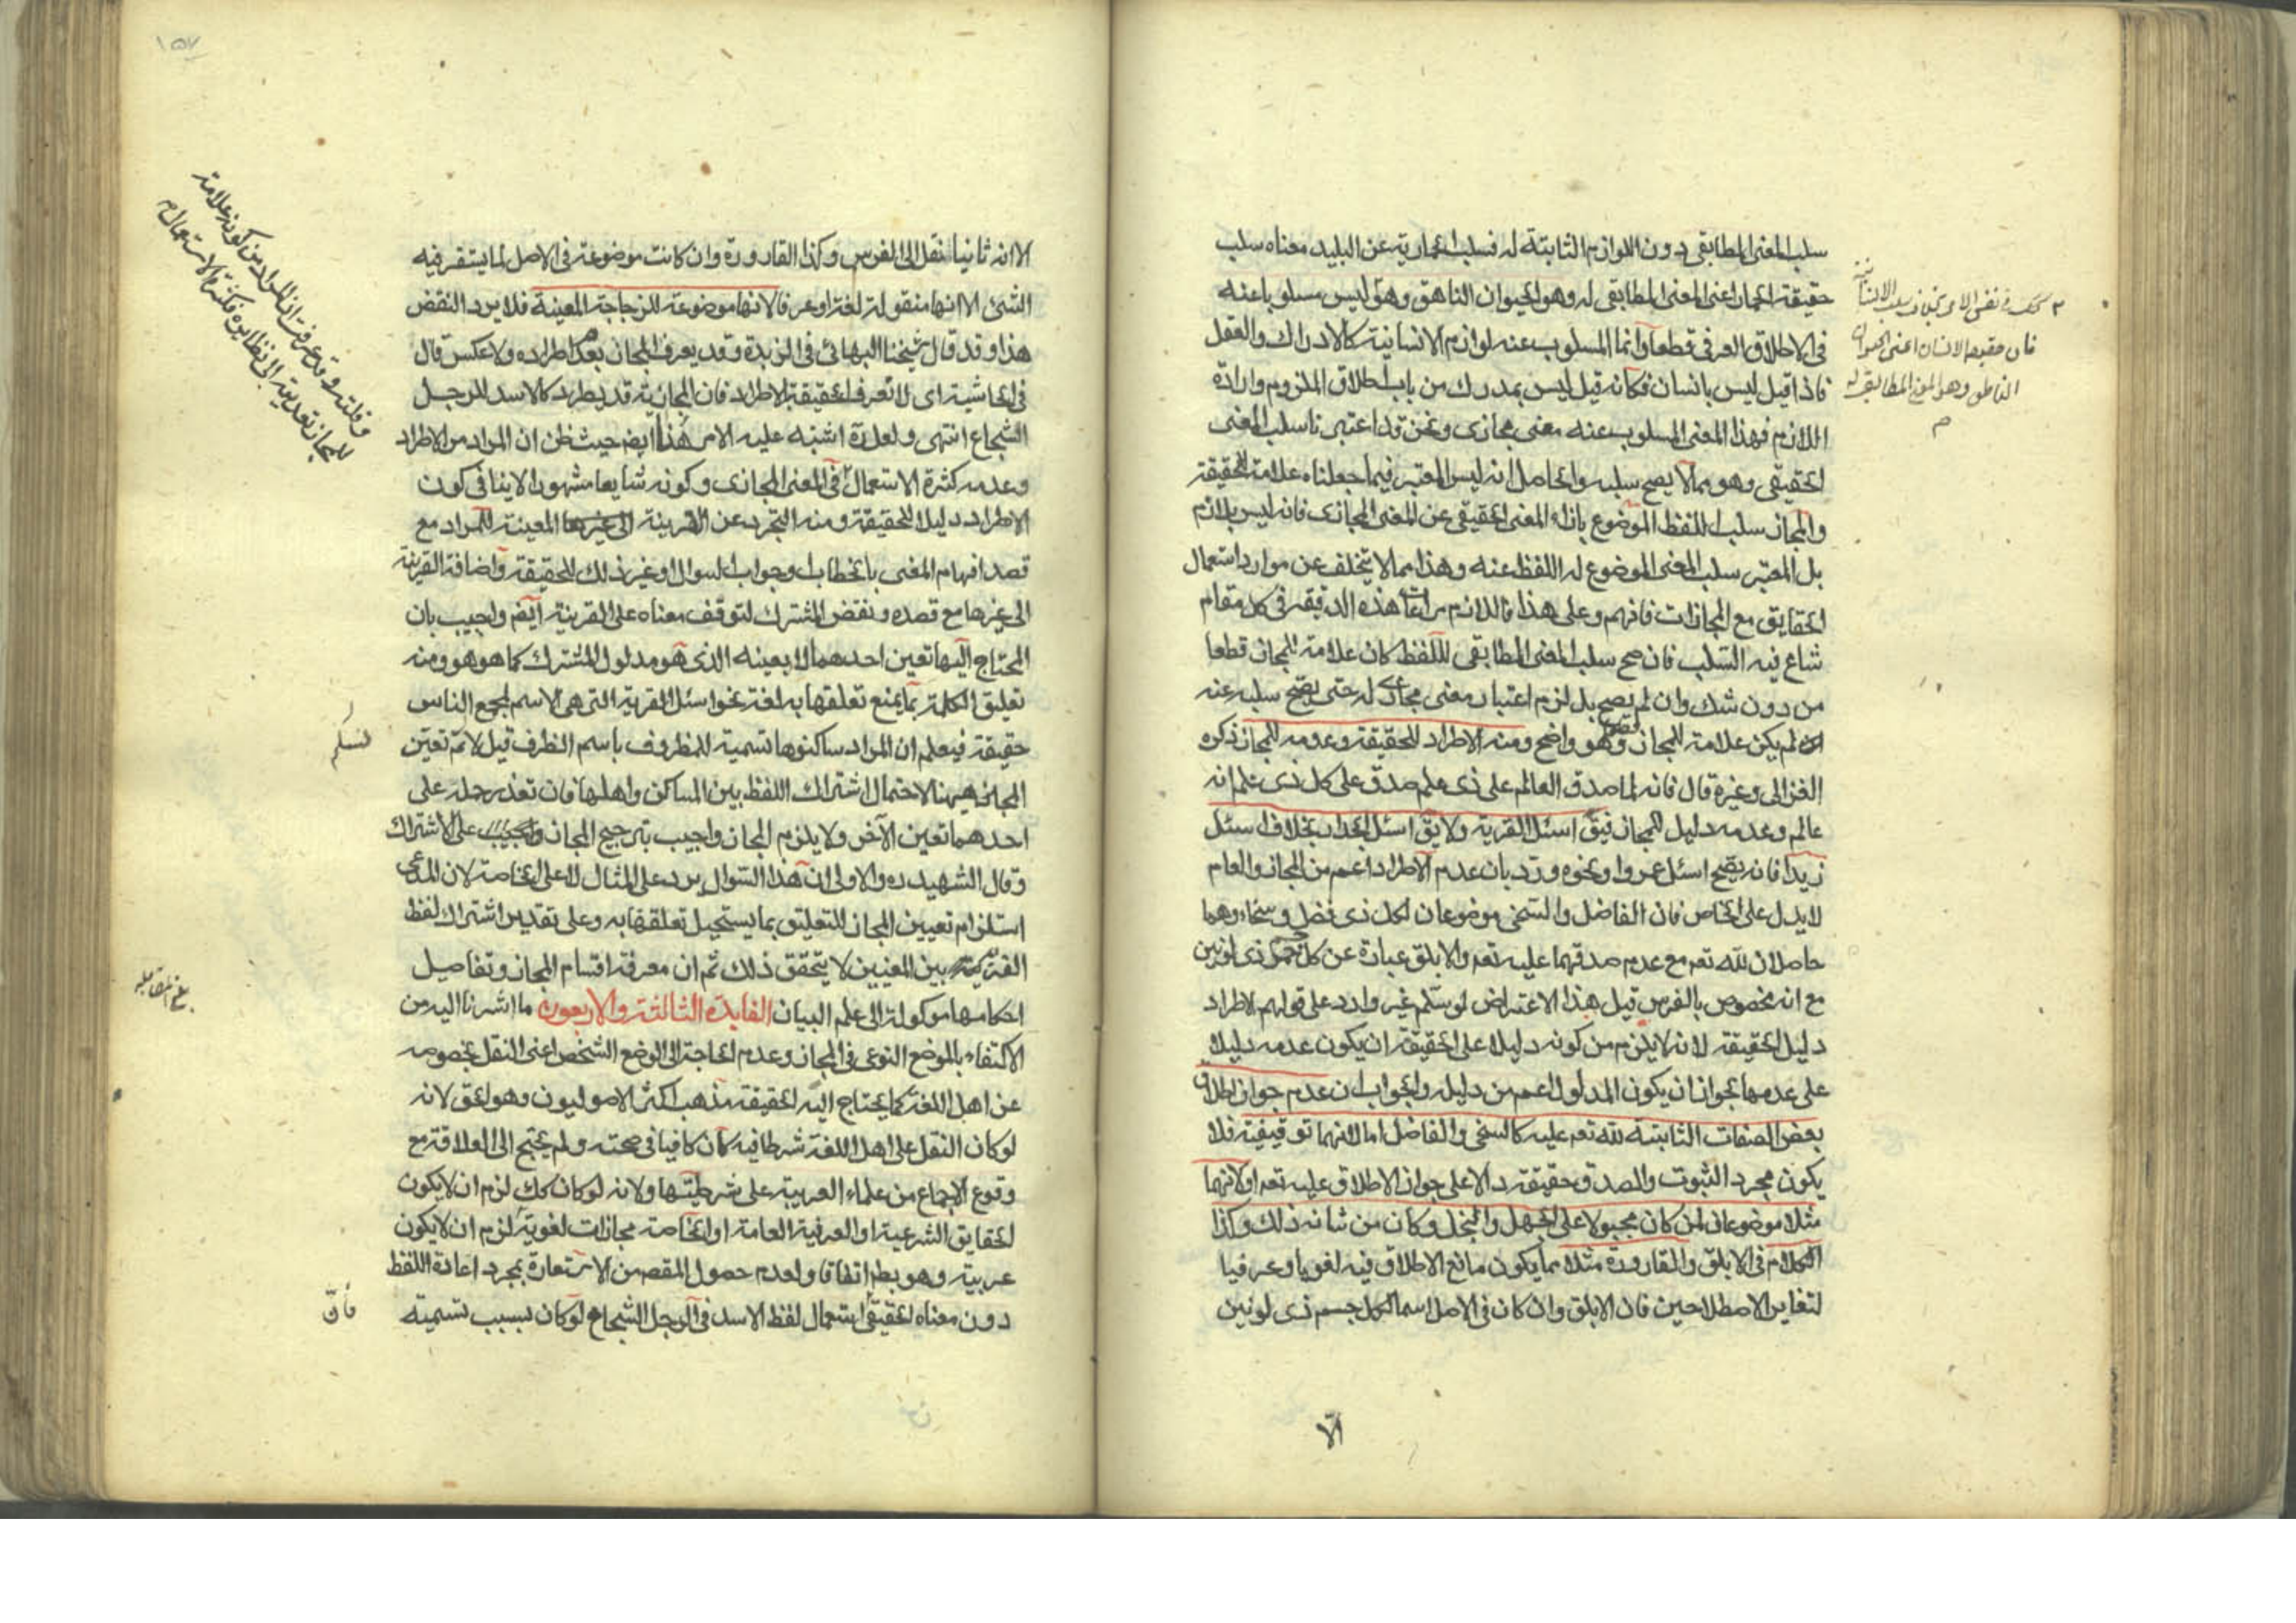 سلب المعنى المطابقى دون اللوازم الثابتة له فسلب الحمارية عن البليد معناه سلب
حقيقة الحمار اعنى المعنى المطابقى له وهو الحيوان الناهق وهو ليس مسلوبا عنه
فى الاطلاق العرفى قطعا وانما المسلوب عنه لوازم الانسانية كالادراك والعقل
فاذا قيل ليس بانسان فكانه قيل ليس بمدرك من باب اطلاق الملزوم وارادة
اللازم فهذا المعنى المسلوب عنه معنى مجازى ونحن قد اعتبرنا سلب المعنى
الحقيقى وهو مما لا يصح سلبه والحاصل انه ليس المعتبر فيما جعلناه علامة للحقيقة
والمجاز سلب اللفظ الموضوع بازاء المعنى الحقيقى عن المعنى المجازى فانه ليس بلازم
بل المعتبر سلب المعنى الموضوع له اللفظ عنه وهذا مما لا يتخلف عن موارد استعمال
الحقايق مع المجازات فافهم وعلى هذا فاللازم مراعات هذه الدقيقه فى كل مقام
شاع فيه السلب فان صح سلب المعنى المطابقى للفظ كان علامة للمجاز قطعا
من دون شك وان لم يصح بل لزم اعتبار معنى مجازى له حتى يصح سلبه عنه
لم يكن علامة للمجاز وهو واضح ومنه الاطراد للحقيقة وعدمه للمجاز ذكره
الغزالى وغيره قال فانه لما صدق العالم على ذى علم صدق على كل ذى علم انه
عالم وعدمه دليل للمجاز فيق اسئل القرية ولا يق اسئل الجدار بخلاف اسئل
زيدا فانه يصح اسئل عمروا ونحوه ورد بان عدم الاطراد اعم من المجاز والعام
لا يدل على الخاص فان الفاضل والسخى موضوعان لكل ذى فضل وسخاء وهما
حاصلان لله تعم مع عدم صدقهما عليه تعم والابلق عبارة عن كل ذى لونين
مع انه مخصوص بالفرس قيل هذا الاعتراض لو سلم غير وارد على قولهم الاطراد
دليل الحقيقة لانه لا يلزم من كونه دليلا على الحقيقة ان يكون عدمه دليلا
على عدمها بجواز ان يكون المدلول اعم من دليله والجواب ان عدم جواز اطلاق
بعض الصفات الثابتة لله تعم عليه كالسخى والفاضل اما لانها توقيفية فلا
يكون مجرد الثبوت والصدق حقيقة دالا على جواز الاطلاق عليه تعم او لانهما
مثلا موضوعان لمن كان مجبولا على الجهل والبخل وكان من شانه ذلك وكذا
الكلام فى الابلق والقارورة مثلا مما يكون مانع الاطلاق فيه لغويا وعرفيا
لتغاير الاصطلاحين فان الابلق وان كان فى الاصل اسما لكل جسم ذى لونين
الا
فان حقيقه الانسان اعنى الحيوان
الناطق وهو المعنى المطابقى له
١٥٧
الا انه ثانيا نقل الى الفرس وكذا القارورة وان كانت موضوعة فى الاصل لما يستقر فيه
الشئ الا انها منقولة لغة او عرفا لانها موضوعة للزجاجة المعينة فلا يرد النقض
هذا وقد قال شيخنا البهائى فى الزبدة وقد يعرف المجاز بعدم اطراده ولا عكس قال
فى الحاشية اى لا تعرف الحقيقة بالاطراد فان المجاز قد يطرد كالاسد للرجل
الشجاع انتهى ولعله ره اشتبه عليه الامر هنا ايضم حيث ظن ان المراد من الاطراد
وعدمه كثرة الاستعمال فى المعنى المجازى وكونه شايعا مشهورا لا ينافى كون
الاطراد دليلا للحقيقة ومنه التجرد عن القرينة المعينة للمراد مع
قصد افهام المعنى بالخطاب وجواب السوال او غير ذلك للحقيقة واضافة القرينة
الى غيرها مع قصده ونقض المشترك لتوقف معناه على القرينة ايضم واجيب بان
المحتاج اليها تعين احدهما لا بعينه الذى هو مدلول المشترك كما هو هو ومنه
تعليق الكلمة بما يمنع تعلقها به لغة نحو اسئل القرية التى هى الاسم لمجمع الناس
حقيقة فيعلم ان المراد ساكنوها تسمية للمظروف باسم الظرف قيل لا ثم تعين
المجاز هيهنا لاحتمال اشتراك اللفظ بين المساكن واهلها فان تعذر حمله على
احدهما تعين الآخر ولا يلزم المجاز واجيب بترجيح المجاز على الاشتراك
وقال الشهيد ره والاولى ان هذا السوال يرد على المثال لا على الخاصة لان المدعى
استلزام تعيين المجاز للتعليق بما يستحيل تعلقها به وعلى تقدير اشتراك لفظ
القرية بين المعنيين لا يتحقق ذلك ثم ان معرفة اقسام المجاز وتفاصيل
احكامها موكولة الى علم البيان الفايدة الثالثة والاربعون ما اشرنا اليه من
الاكتفاء بالوضع النوعى فى المجاز وعدم الحاجة الى الوضع الشخصى اعنى النقل بخصوصه
عن اهل اللغة كما يحتاج اليه الحقيقة مذهب اكثر الاصوليون وهو الحق لانه
لو كان النقل على اهل اللغة شرطا فيه كان كافيا فى صحته ولم يحتج الى العلاقة مع
وقوع الاجماع من علماء العربية على شرطيتها ولانه لو كان كك لزم ان لا يكون
الحقايق الشرعية او العرفية العامة او الخاصة مجازات لغوية لزم ان لا يكون
عربية وهو بط اتفاقا ولعدم حصول المقصم من الاستعارة بمجرد اعادة اللفظ
دون معناه الحقيقى استعمال لفظ الاسد فى الرجل الشجاع لو كان بسبب تسميته
وقلته وقد عرفت ان المراد من كونه علامة
للمجاز تعديته الى نظايره فكثرة الاستعمال م
بلغ مقابله